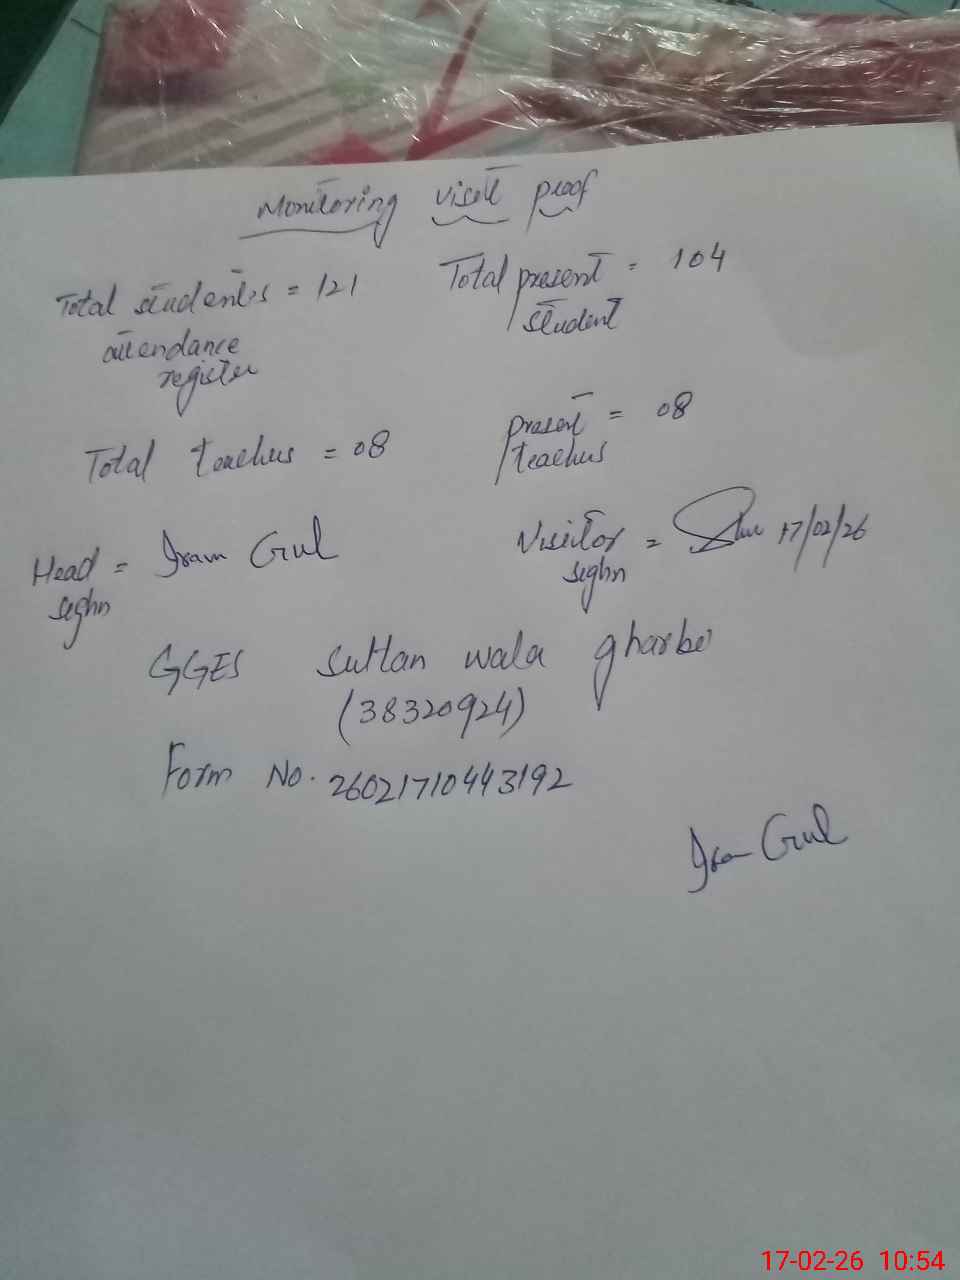 Monitoring visit proof
Total students = 121 Total present = 104
attendance student
register
Total teachers = 08 present = 08
teachers
Head = Iram Gul Visitor = 17/02/26
seghn seghn
GGES Sultan wala gharbi
(38320924)
Form No. 26021710443192
Iram Gul
17-02-26 10:54